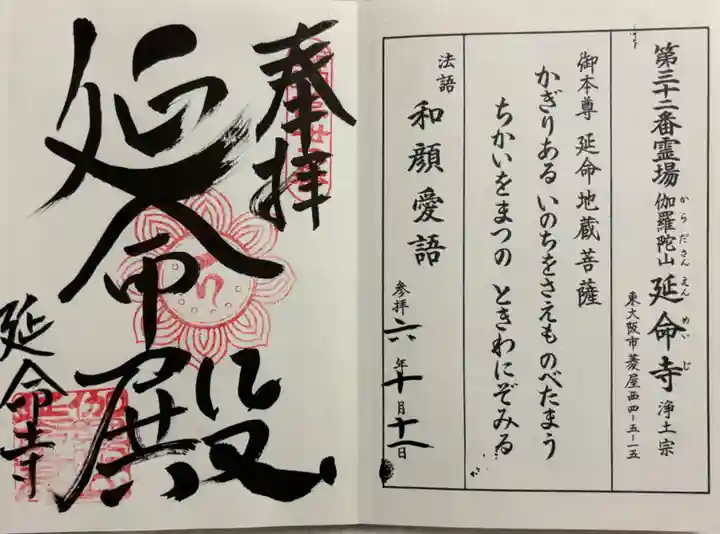 第三十二番霊場 伽羅陀山 延命寺 浄土宗
からださん えんめいじ
東大阪市菱屋西四-五-一五
御本尊 延命地蔵菩薩
かぎりある いのちをさえも のべたまう
ちかいをまつの ときわにぞみる
法語 和顔愛語
参拝 六年十月十一日
奉拝
延命殿
延命寺